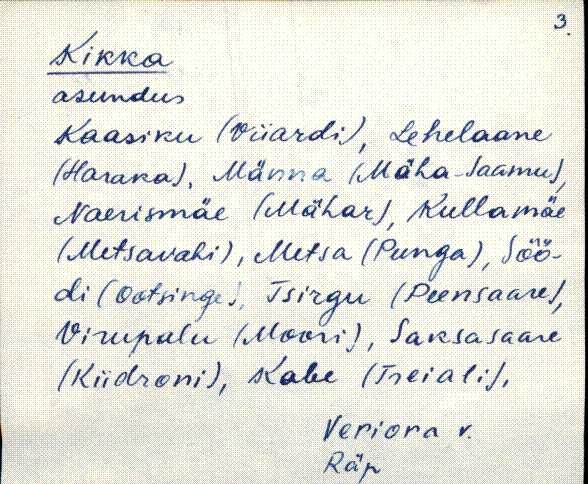 3.
Kikka
asundus
Kaasiku (Viiardi), Lehelaane
(Haraka), Männa (Mäha-Saamu),
Naerismäe (Mähar), Kullamäe
(Metsavahi), Metsa (Punga), Söö-
di (Ootsinge), Tsirgu (Peensaare),
Virupalu (Moori), Saksasaare
(Kiidroni), Kabe (Treiali),
Veriora v.
Räp